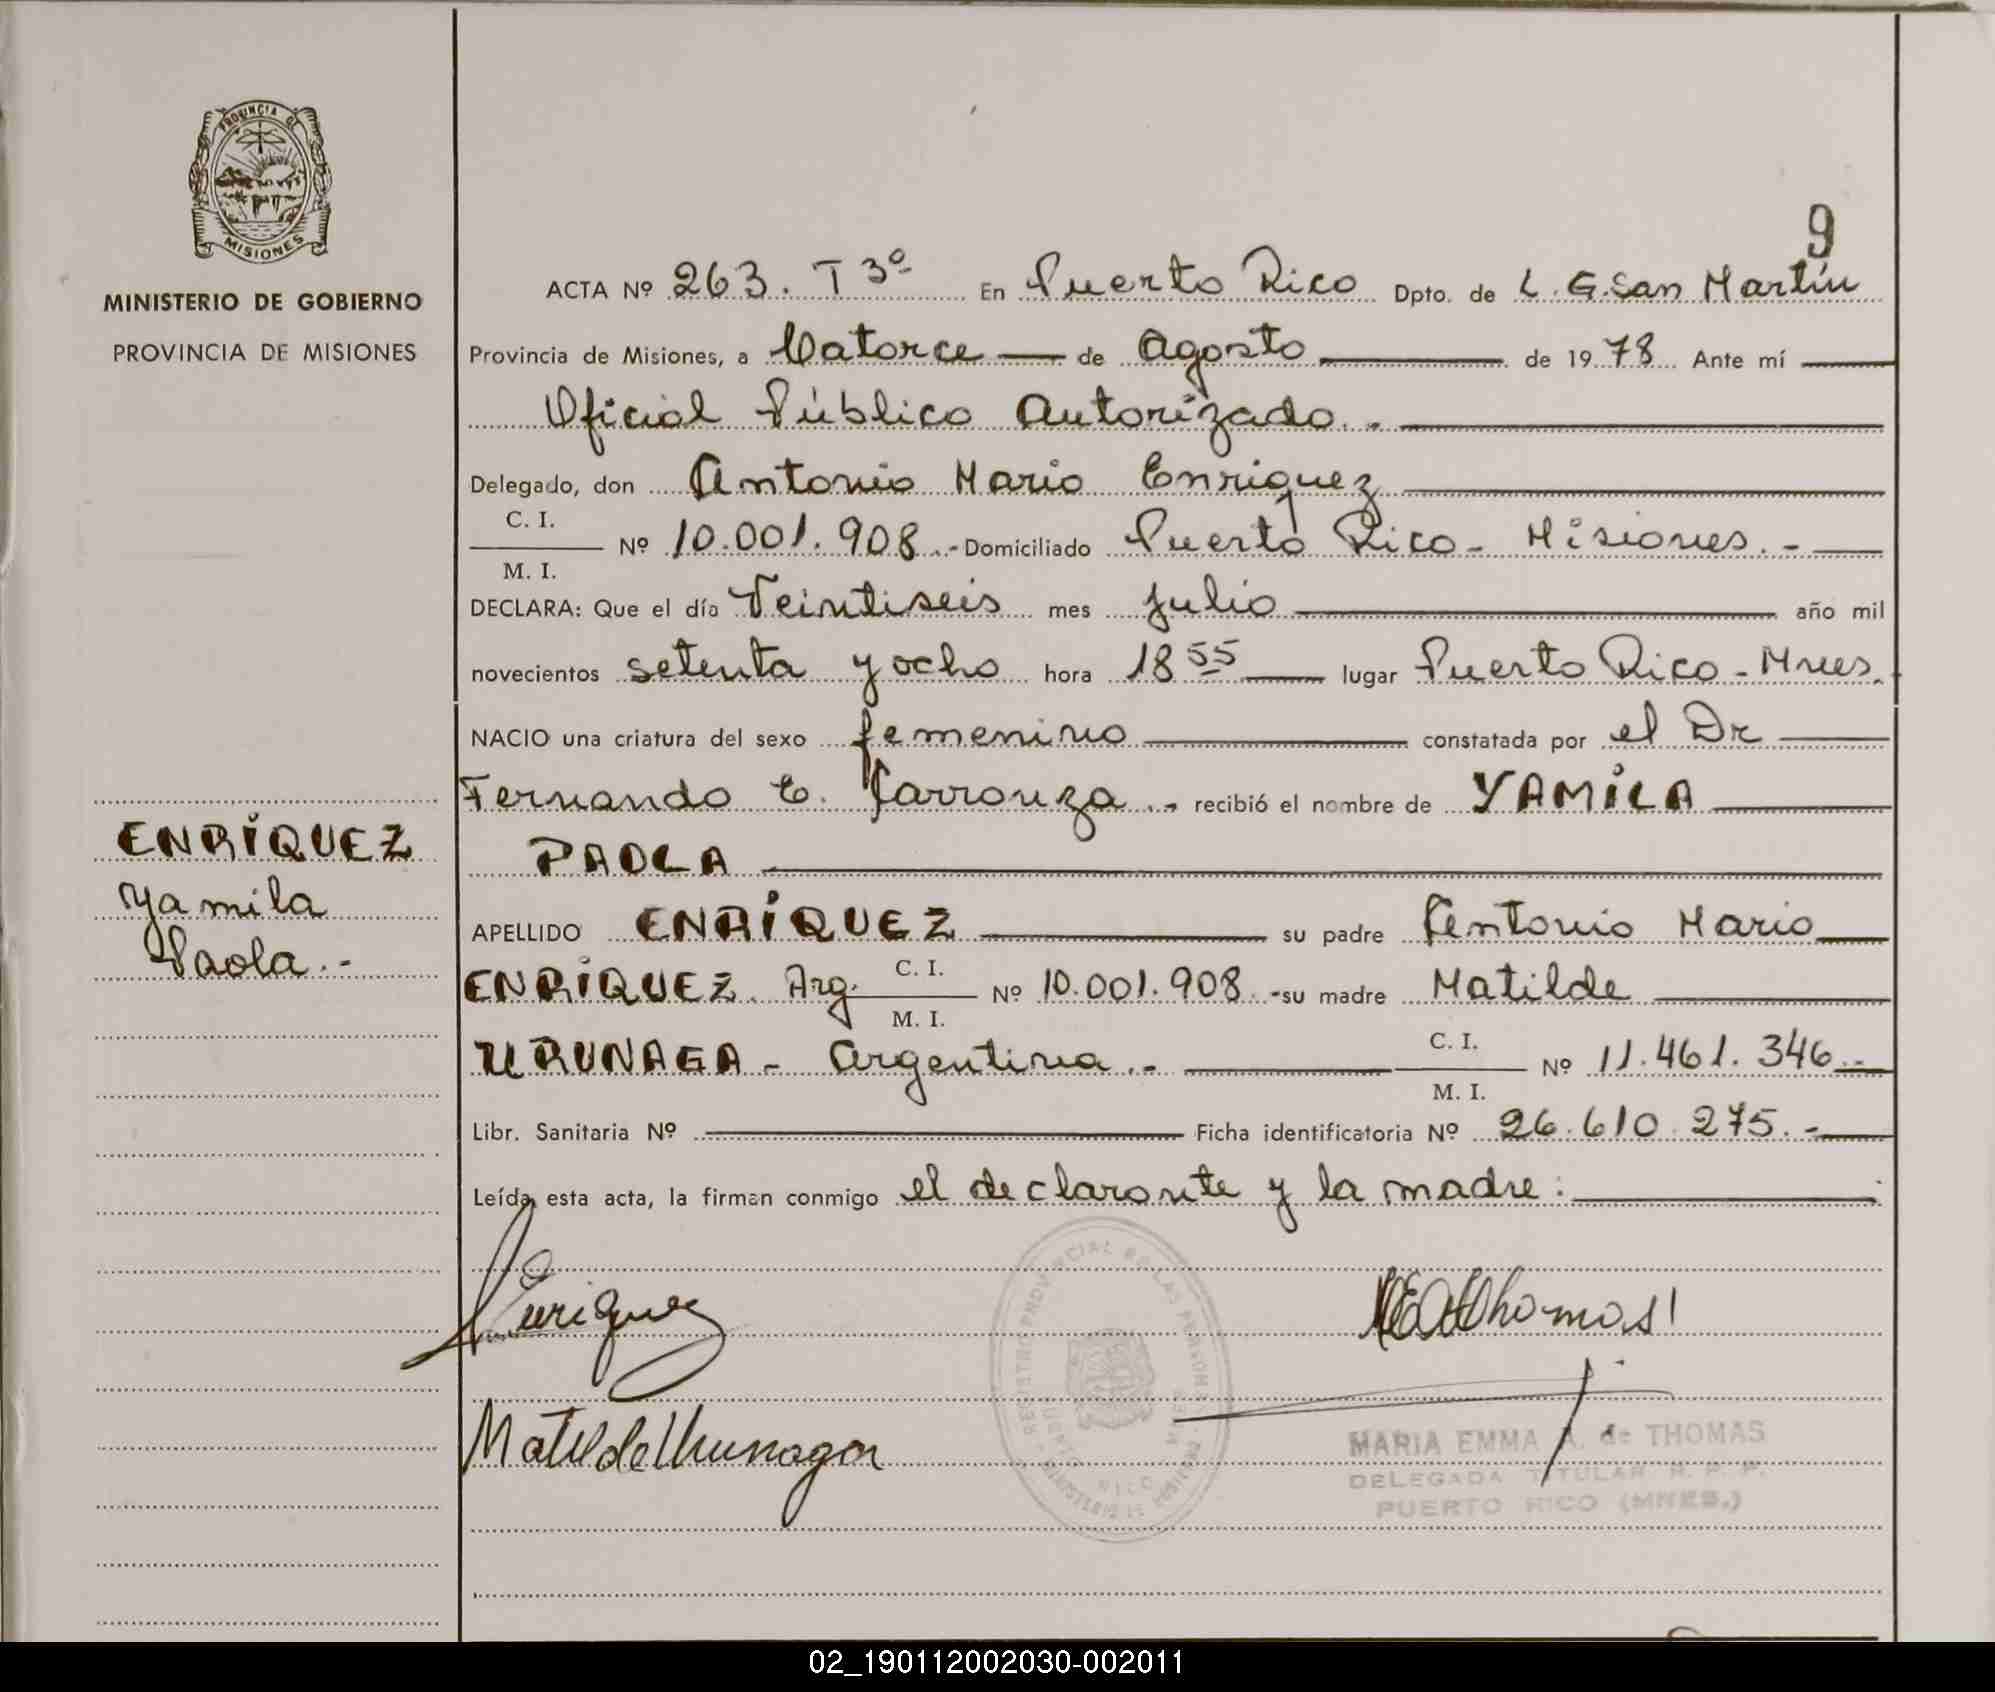 PROVINCIA DE
MISIONES
MINISTERIO DE GOBIERNO
PROVINCIA DE MISIONES
9
ACTA Nº 263. T 3º En Puerto Rico Dpto. de L. G. San Martín
Provincia de Misiones, a Catorce de Agosto de 1978 Ante mí
Oficial Público Autorizado.-
Delegado, don Antonio Mario Enriquez
C. I.
Nº 10.001.908.- Domiciliado Puerto Rico - Misiones.-
M. I.
DECLARA: Que el día Veintiseis mes Julio año mil
novecientos setenta y ocho hora 18 55 lugar Puerto Rico - Mnes.
NACIO una criatura del sexo femenino constatada por el Dr
Fernando E. recibió el nombre de YAMÍLA
PAOLA
ENRÍQUEZ
Yamila
Paola.-
APELLIDO ENRÍQUEZ su padre Antonio Mario
ENRÍQUEZ Arg. C. I. Nº 10.001.908.- su madre Matilde
M. I.
URUNAGA - Argentina.- C. I. Nº 11.461.346.-
M. I.
Libr. Sanitaria Nº Ficha identificatoria Nº 26.610.275.-
Leída esta acta, la firman conmigo el declarante y la madre:
Enriquez
Thomas
Matilde Urunaga
REGISTRO PROVINCIAL DE LAS PERSONAS
PUERTO RICO
MARIA EMMA A. de THOMAS
DELEGADA TITULAR R. P. P.
PUERTO RICO (MNES.)
02_190112002030-002011